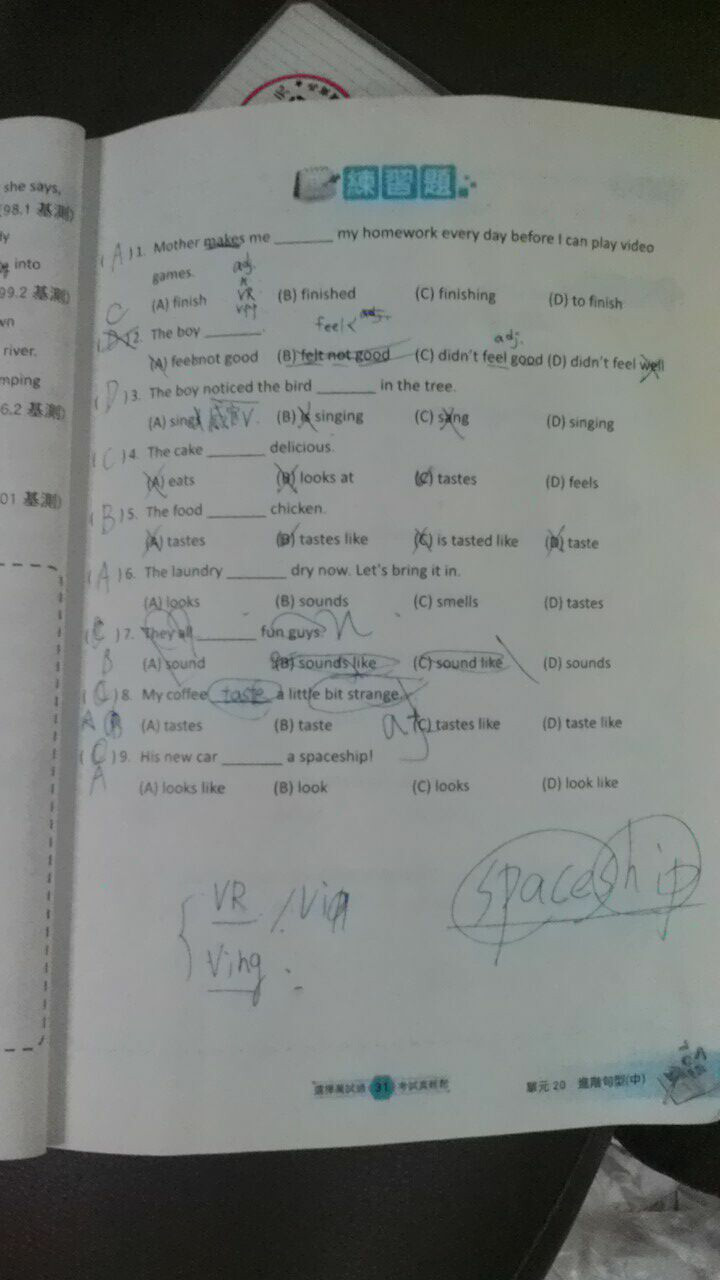 she says,
98.1 基測)
into
99.2 基測)
river.
mping
6.2 基測)
01 基測)
練習題
(A) 1. Mother makes me ______ my homework every day before I can play video
games.
adj.
VR
(A) finish (B) finished (C) finishing (D) to finish
C
2. The boy ______.
feel< adj.
adj.
(A) feebnot good (B) felt not good (C) didn't feel good (D) didn't feel well
(D) 3. The boy noticed the bird ______ in the tree.
(A) sings 感官V. (B) is singing (C) sang (D) singing
(C) 4. The cake ______ delicious.
(A) eats (B) looks at (C) tastes (D) feels
(B) 5. The food ______ chicken.
(A) tastes (B) tastes like (C) is tasted like (D) taste
(A) 6. The laundry ______ dry now. Let's bring it in.
(A) looks (B) sounds (C) smells (D) tastes
(C) 7. They all ______ fun guys? n
B (A) sound (B) sounds like (C) sound like (D) sounds
(C) 8. My coffee taste a little bit strange.
A B (A) tastes (B) taste adj (C) tastes like (D) taste like
(C) 9. His new car ______ a spaceship!
A (A) looks like (B) look (C) looks (D) look like
spaceship
VR
Ving
31
單元 20 進階句型(中)